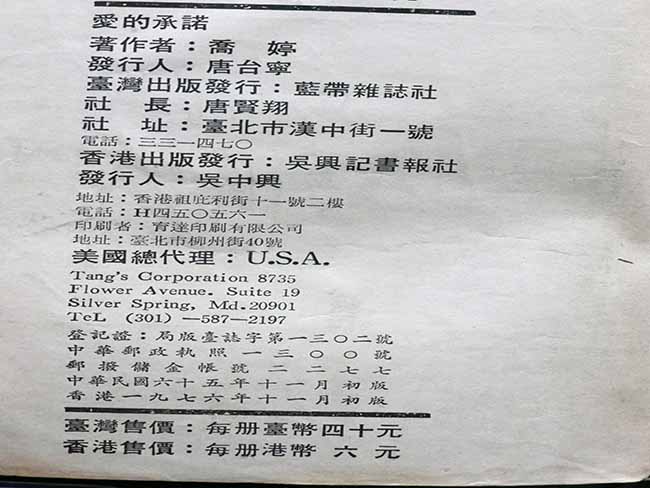 愛的承諾
著作者：喬　婷
發行人：唐台寧
臺灣出版發行：藍帶雜誌社
社　長：唐賢翔
社　址：臺北市漢中街一號
電話：三三一四七〇
香港出版發行：吳興記書報社
發行人：吳中興
地址：香港祖庇利街十一號二樓
電話：H四五〇五六一
印刷者：育達印刷有限公司
地址：臺北市柳州街40號
美國總代理：U.S.A.
Tang's Corporation 8735
Flower Avenue. Suite 19
Silver Spring, Md.20901
TeL (301)—587—2197
登記證：局版臺誌字第一三〇二號
中華郵政執照一三〇〇號
郵撥儲金帳號二二七七
中華民國六十五年十一月初版
香港一九七六年十一月初版
臺灣售價：每册臺幣四十元
香港售價：每册港幣 六 元